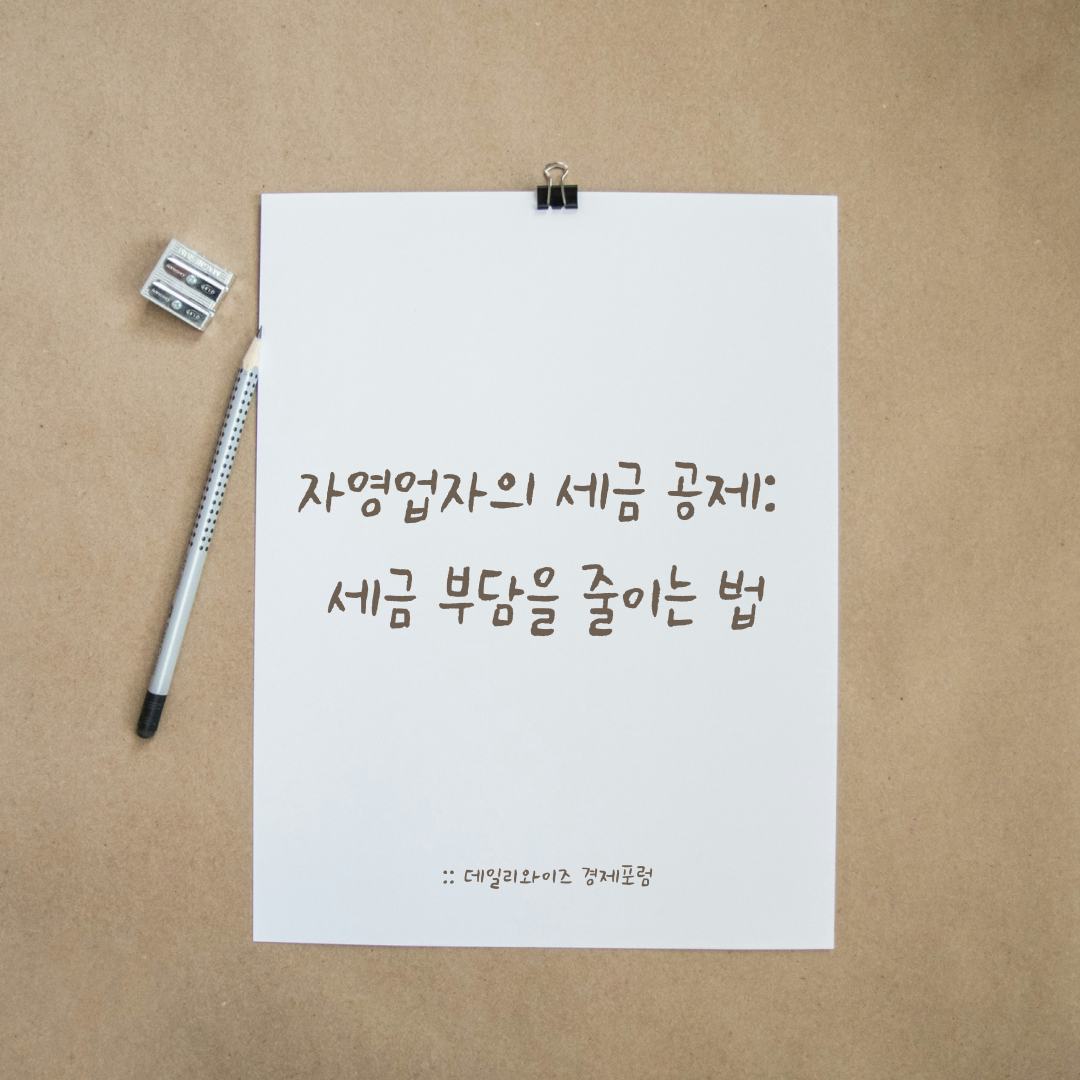 자영업자의 세금 공제:
세금 부담을 줄이는 법
:: 데일리와이즈 경제포럼